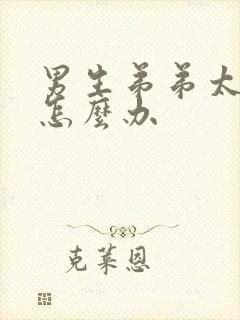 男生弟弟太
怎麼办
克莱恩